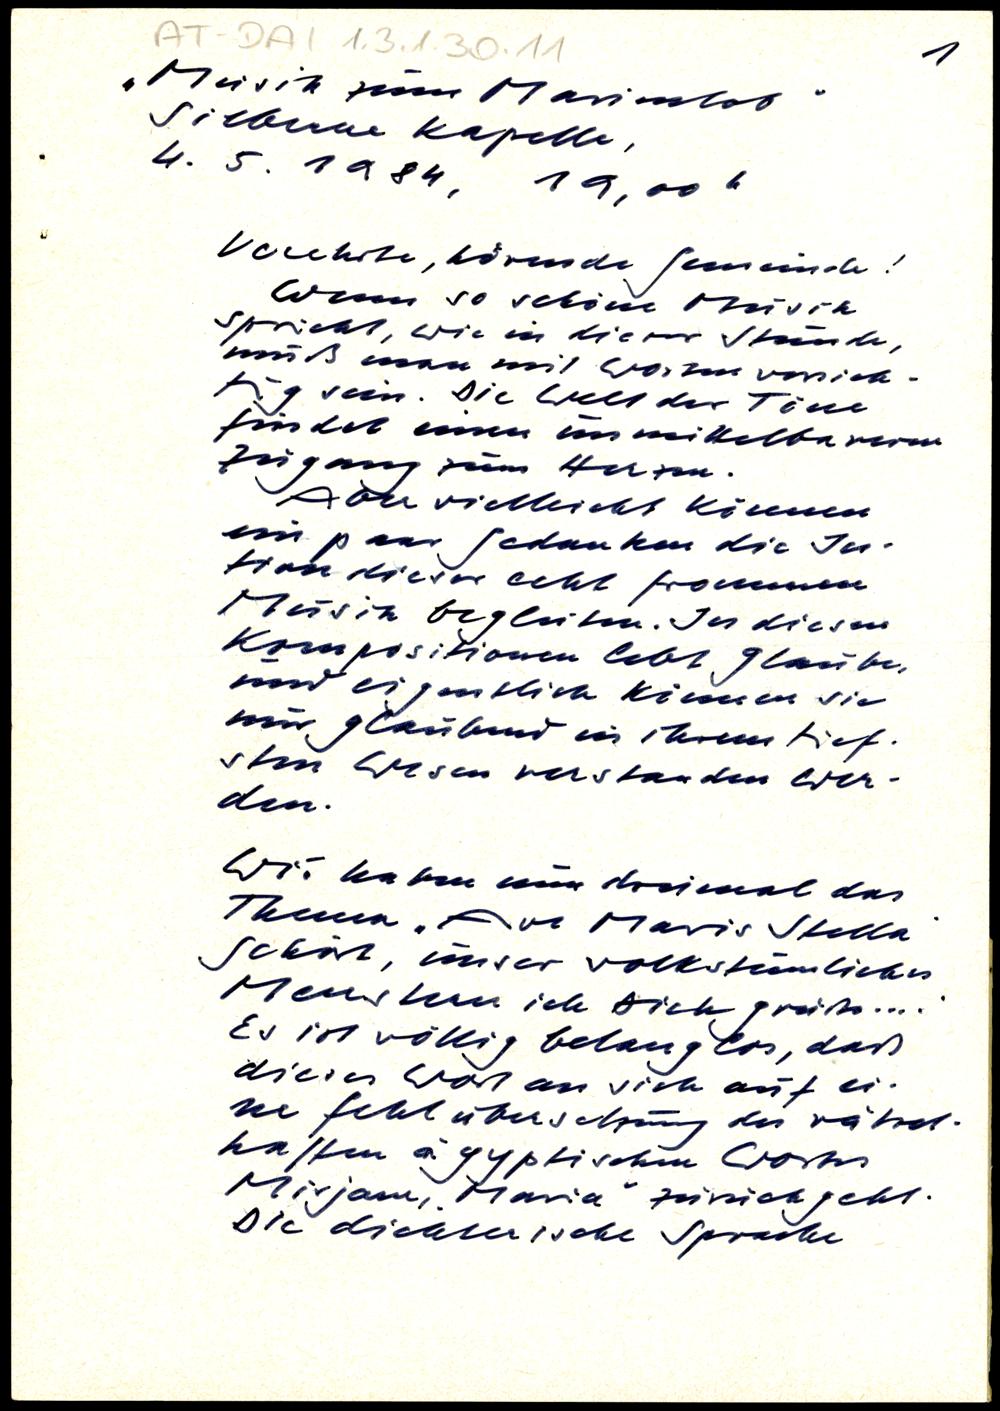 AT-DAI 1.3.1.30.11
1
„Musik zum Marienlob"
Silberne Kapelle,
4. 5. 1984, 19,00 h
Verehrte, hörende Gemeinde!
Wenn so schöne Musik
spricht, wie in dieser Stunde,
muß man mit Worten vorsich-
tig sein. Die Welt der Töne
findet einen unmittelbareren
Zugang zum Herzen.
Aber vielleicht können
ein paar Gedanken die In-
tion dieser echt frommen
Musik begleiten. In diesen
Kompositionen lebt Glaube,
und eigentlich können sie
nur glaubend in ihrem tief-
sten Wesen verstanden wer-
den.
Wir haben nun dreimal das
Thema „Ave Maris Stella"
gehört, unser volkstümliches
Meerstern ich Dich grüße....
Es ist völlig belanglos, daß
dieses Wort an sich auf ei-
ne Fehlübersetzung des rätsel-
haften ägyptischen Wortes
Mirjam, „Maria" zurückgeht.
Die dichterische Sprache